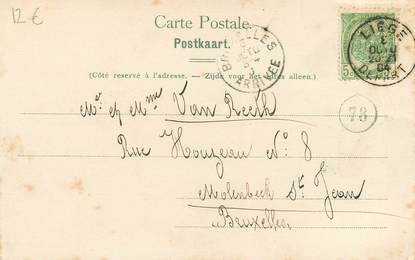 12 €
Carte Postale.
Postkaart.
(Côté reservé à l'adresse. — Zijde voor het adres alleen.)
BRUXELLES
ARRIVEE
LIEGE
DEPART
5
78
Mr et Mme Van Reeth
Rue Houzeau No 8
Molenbeek St Jean
Bruxelles